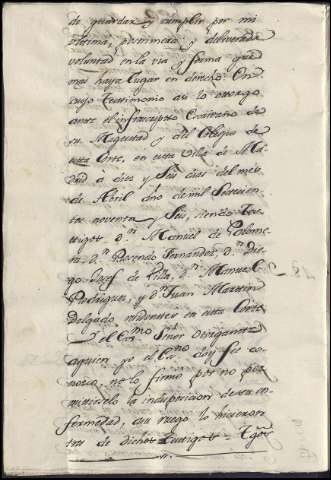 de guardar y cumplir por mi
ultima, postrimera y deliverada
voluntad en la via y forma que
mas haya lugar en derecho: En
cuyo testimonio asi lo otorgo
ante el infrascripto Escrivano de
su Magestad y del Colegio de
esta Corte, en esta Villa de Ma-
drid à diez y Seis dias del mes
de Abril año de mil Setecien-
tos noventa y Seis, siendo Tes-
tigos dn. Manuel de
dn. Rosendo Fernandez, dn. Die-
go Josef de dn. Manuel
Rodriguez, y dn. Juan Martin
Delgado residentes en esta Corte
y el Exmo. Señor Otorgante
aquien yo el Esno. doy fee co-
nozco, no lo firmó por no per-
mitirselo la indisposicion de su en-
fermedad, a su ruego lo hicieron
tres de dichos testigos = Tgo.